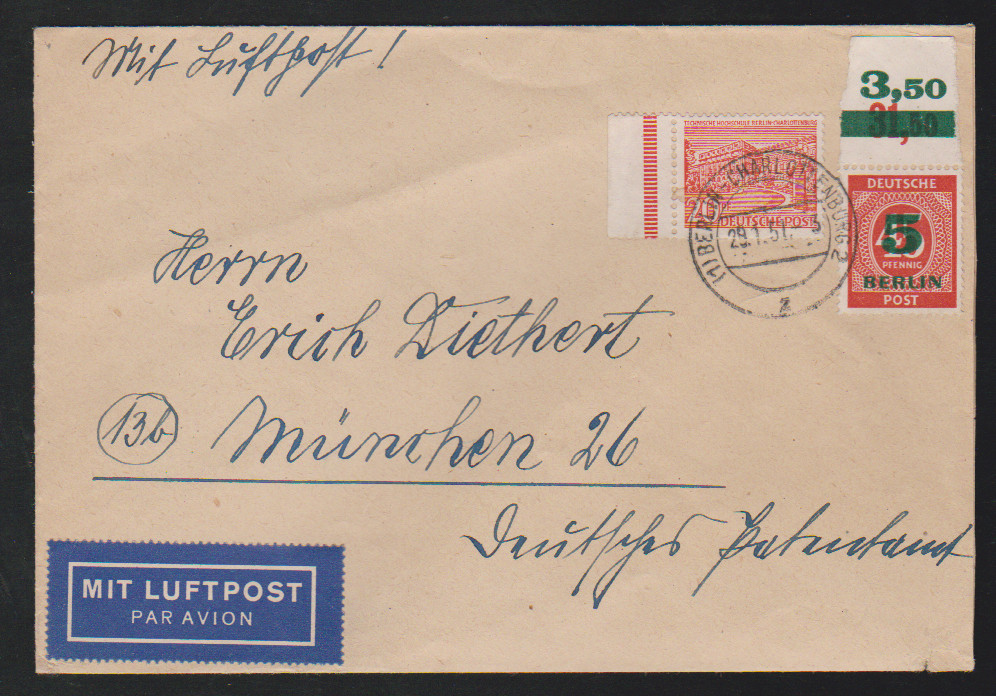 Mit Luftpost!
3,50
31,50
TECHNISCHE HOCHSCHULE BERLIN-CHARLOTTENBURG
DEUTSCHE POST
(1) BERLIN-CHARLOTTENBURG 2
29.1.51
z
DEUTSCHE
5
PFENNIG
BERLIN
POST
Herrn
Erich Diethert
13b München 26
Deutsches Patentamt
MIT LUFTPOST
PAR AVION